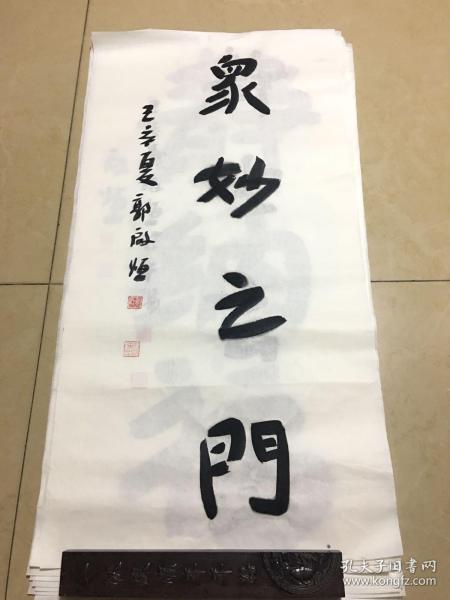 眾妙之門
己亥夏 郭啟烜
孔夫子旧书网
www.kongfz.com